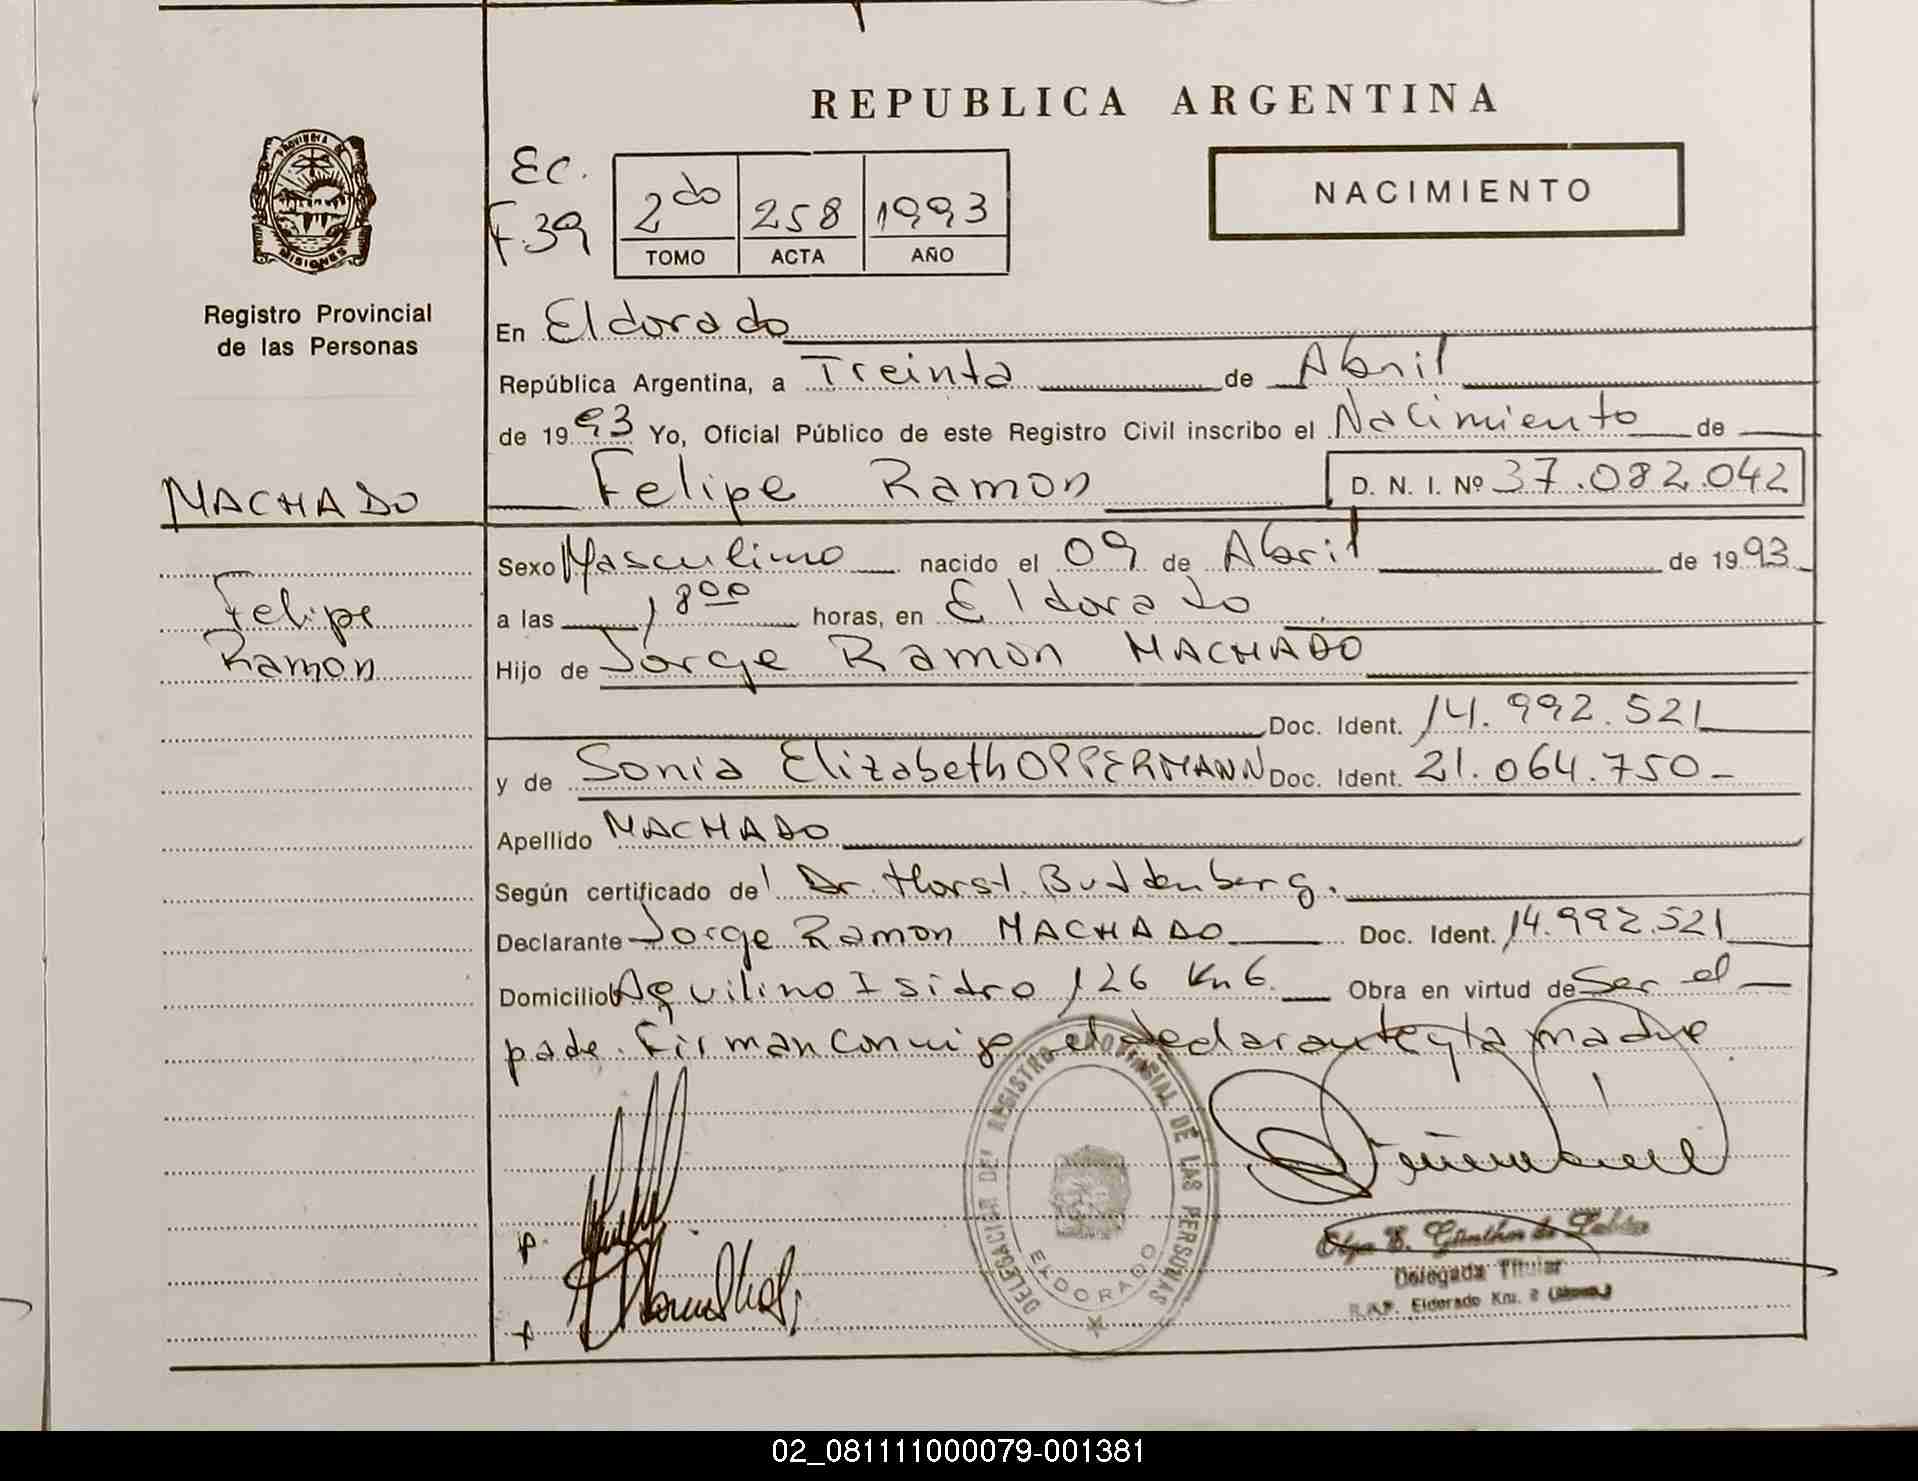 REPUBLICA ARGENTINA
PROVINCIA DE
MISIONES
Registro Provincial
de las Personas
Ec.
F.39
2do 258 1993
TOMO ACTA AÑO
NACIMIENTO
En Eldorado
República Argentina, a Treinta de Abril
de 1993 Yo, Oficial Público de este Registro Civil inscribo el Nacimiento de
Felipe Ramon D. N. I. Nº 37.082.042
MACHADO
Felipe
Ramon
Sexo Masculino nacido el 09 de Abril de 1993
a las 1,800 horas, en Eldorado
Hijo de Jorge Ramon MACHADO
Doc. Ident. 14.992.521
y de Sonia Elizabeth OPPERMANN Doc. Ident. 21.064.750-
Apellido MACHADO
Según certificado del Dr. Horst Buddenberg.
Declarante Jorge Ramon MACHADO Doc. Ident. 14.992.521
Domicilio Aquilino Isidro 126 Km 6. Obra en virtud de Ser el
pade. Firman conmigo el declarante y la madre
DELEGACION DEL REGISTRO PROVINCIAL DE LAS PERSONAS
ELDORADO
p.
Olga E. Günther de
Delegada Titular
R.P.P. Eldorado Km. 2
02_081111000079-001381